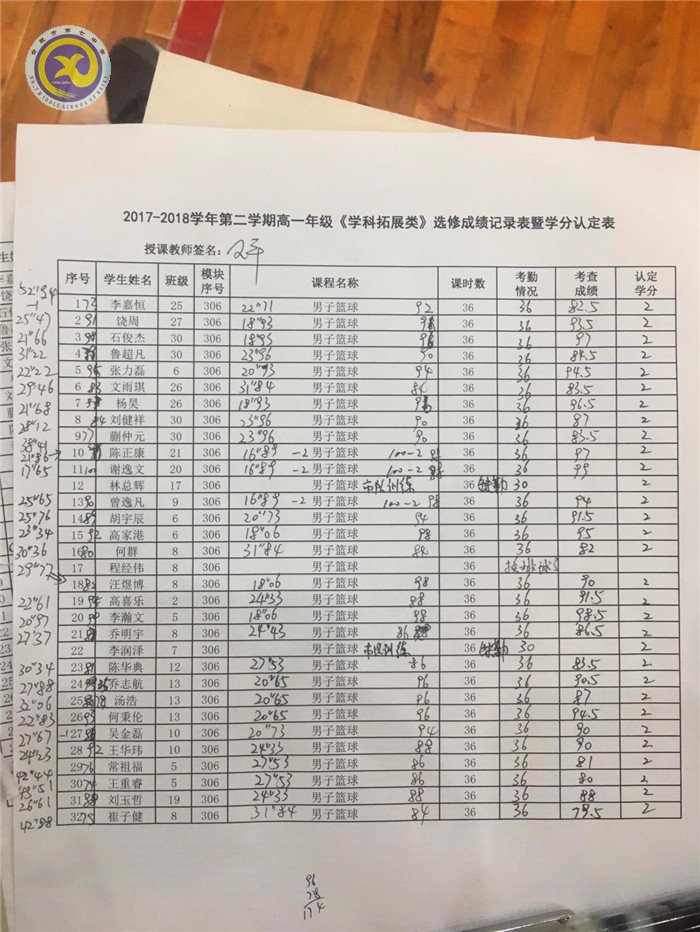 合肥市第七中学
NO.7 MIDDLE SCHOOL OF HEFEI
2017-2018学年第二学期高一年级《学科拓展类》选修成绩记录表暨学分认定表
授课教师签名：
序号 学生姓名 班级 模块序号 课程名称 课时数 考勤情况 考查成绩 认定学分
52"94 1 73 李嘉恒 25 306 22"71 男子篮球 92 36 36 82.5 2
25"47 2 91 饶周 27 306 18"93 男子篮球 36 36 93.5 2
21"66 3 石俊杰 30 306 18"93 男子篮球 36 36 97 2
31"22 4 鲁超凡 30 306 23"96 男子篮球 90 36 36 84.5 2
22"22 5 95 张力磊 6 306 20"93 男子篮球 94 36 36 94.5 2
29"46 6 83 文雨琪 26 306 31"84 男子篮球 84 36 36 83.5 2
21"68 7 杨昊 26 306 18"93 男子篮球 36 36 96.5 2
28"12 8 84 刘健祥 30 306 23"96 男子篮球 90 36 36 87 2
38"41 9 77 蒯仲元 30 306 23"96 男子篮球 90 36 36 83.5 2
21"86 10 陈正康 21 306 16"89 -2 男子篮球 100-2 98 36 36 97 2
17"65 11 谢逸文 20 306 16"89 -2 男子篮球 100-2 98 36 36 99 2
12 林总辉 17 306 男子篮球 市队训练 36 缺勤 30 2
25"65 13 90 曾逸凡 9 306 16"89 -2 男子篮球 100-2 98 36 36 94 2
25"76 14 89 胡宇辰 6 306 20"73 男子篮球 94 36 36 91.5 2
23"34 15 92 高家港 6 306 18"06 男子篮球 98 36 36 95 2
30"36 16 80 何群 8 306 31"84 男子篮球 84 36 36 82 2
17 程经伟 8 306 男子篮球 36
29"77 18 82 汪煜博 8 306 18"06 男子篮球 98 36 36 90 2
22"61 19 94 高喜乐 2 306 24"33 男子篮球 88 36 36 91.5 2
20"97 20 李瀚文 5 306 18"06 男子篮球 98 36 36 98.5 2
27"37 21 乔明宇 8 306 24"43 男子篮球 86 36 36 86.5 2
22 李润泽 7 306 男子篮球 市队训练 36 缺勤 30 2
30"34 23 81 陈华典 12 306 27"53 男子篮球 86 36 36 83.5 2
27"88 24 乔志航 13 306 20"65 男子篮球 96 36 36 90.5 2
31"06 25 78 汤浩 13 306 20"65 男子篮球 96 36 36 87 2
22"83 26 93 何秉伦 13 306 20"65 男子篮球 96 36 36 94.5 2
27"67 27 吴金磊 10 306 20"73 男子篮球 94 36 36 90 2
24"23 28 92 王华玮 10 306 24"33 男子篮球 88 36 36 90 2
42"44 29 76 常祖福 5 306 27"53 男子篮球 86 36 36 81 2
43"51 30 74 王重睿 5 306 27"53 男子篮球 86 36 36 80 2
26"61 31 88 刘玉哲 19 306 24"33 男子篮球 88 36 36 88 2
42"88 32 75 崔子健 8 306 31"84 男子篮球 84 36 36 79.5 2
96
78
174